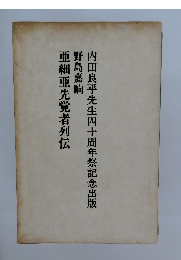 内田良平先生四十周年祭記念出版
野島嘉晌
亜細亜先覚者列伝